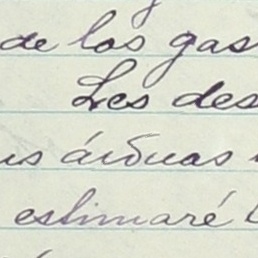 de los gas
Les des
us árduas
estimaré